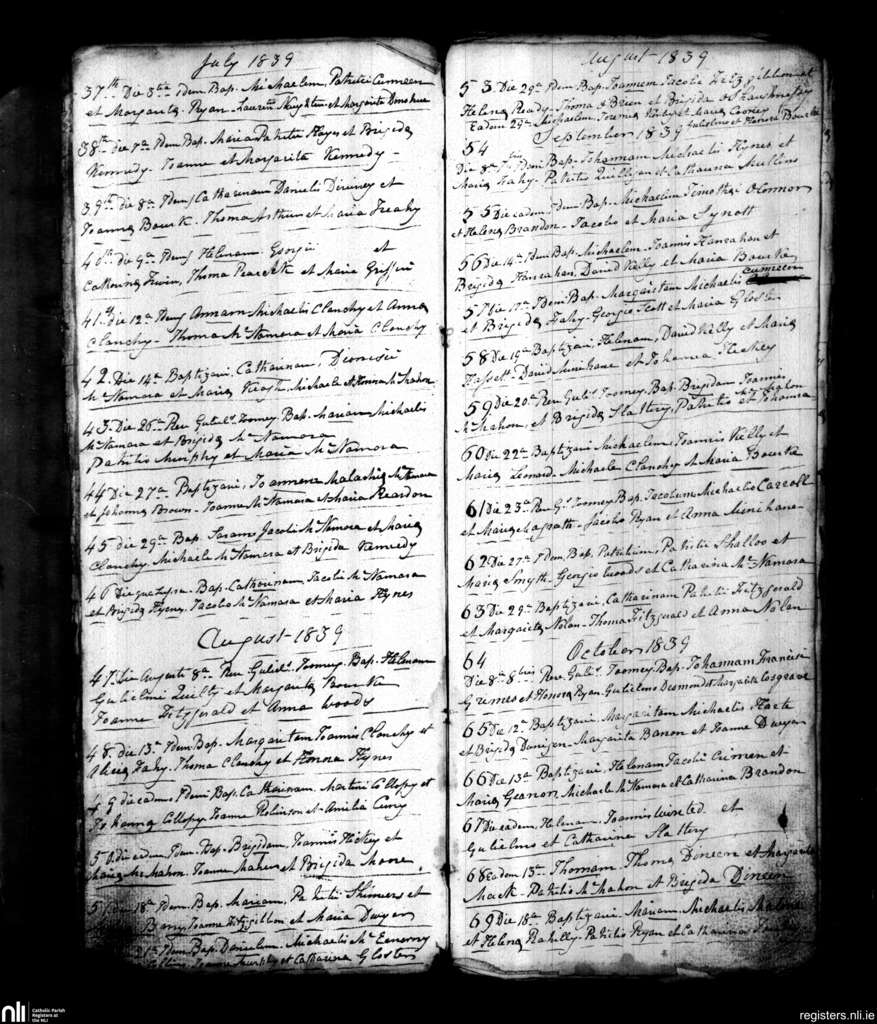 July 1839
37th Die 3tia Idem Bap. Michaelem, Patritii Cumeen
et Margarita Ryan Lauren Naughten et Margarita Donohue
38th die 7a Idem Bap. Maria Patritii Hayes et Brigida
Kennedy. Joanne et Margarita Kennedy
39th die 8a Idem Catharinam Danielis et
Joanna Bourk. Thoma Arthur et Maria Leahy
40th die 9a Idem Helenam Georgii et
Catharina Irwin, Thoma Peacock et Maria Griffin
41st die 12a Idem Annam Michaelis Clanchy et Anna
Clanchy. Thoma McNamara et Maria Clanchy
42. Die 14a Baptizavi, Catharinam, Dionisii
McNamara et Maria Keogh. Michaele et Honora McMahon
43. Die 26a Rev Guliel. Toomey. Bap. Mariam Michaelis
McNamara et Brigida McNamara
Patritio Murphy et Maria McNamara
44 Die 27a Baptizavi, Joannem Malachia McNamara
et Johanna Brown. Joanne McNamara et Maria Reardon
45 die 29a Bap. Saram Jacobi McNamara et Maria
Clanchy. Michaele McNamara et Brigida Kennedy
46 Die Bap. Catharinam Jacobi McNamara
et Brigida Hynes. Jacobo McNamara et Maria Hynes
August 1839
47. die Augusti 8a Rev Guliel. Toomey. Bap. Helenam
Gulielmi Quilty et Margarita Bourke
Joanne Fitzgerald et Anna Woods
48. die 13a Idem Bap. Margaritam Joannis Clanchy et
Alicia Fahy. Thoma Clanchy et Honora Hynes
49 die eadem Idem Bap. Catharinam. Martini Collopy et
Johanna Collopy. Joanne Robinson et Amelia
50. die eadem Idem Bap. Brigidam. Joannis Hickey et
Maria McMahon. Joanne Maher et Brigida Moore
51 die 18a Idem Bap. Mariam, Patritii Shinners et
Barry Joanne Fitzgibbon et Maria Dwyer
21a Idem Bap. Danielem. Michaelis
Joanne Murphy et Catharina Gloster
August 1839
53 Die 29a Idem Bap. Joannem Jacobi Fitzgibbon et
Helena Ready. Thoma O'Brien et Brigida O'Shaughnessy
Eadem 29a Michaelem et Maria Conroy
September 1839 Gulielmo et Honora Bourke
54
Die 8a 7bris Idem Bap. Johannam Michaelis Hynes et
Maria Fahy. Patritio Quilligan et Catharina Mullins
55 Die eadem Idem Bap. Michaelem Timothei O'Connor
et Helena Brandon. Jacobo et Maria Synott
56 die 14a Idem Bap. Michaelem. Joannis Hanrahan et
Brigida Hanrahan. David Kelly et Maria Bourke
57 die 17a Idem Bap. Margaritam Michaelis Cumeen
et Brigida Fahy. Georgio Scott et Maria Gloster
58 Die 19a Baptizavi, Helenam, David Kelly et Maria
Hassett. David Minihane et Johanna Hickey
59 Die 20a Rev Guli. Toomey. Bap. Brigidam Joannis
McMahon, et Brigida Slattery, Patritio et Johanna McMahon
60 Die 22a Baptizavi Michaelem, Joannis Kelly et
Maria Leonard. Michaele Clanchy et Maria Bourke
61 Die 23a Rev Gl. Toomey Bap. Jacobum Michaelis Carroll
et Maria Magrath. Jacobo Ryan et Anna Minihane
62 Die 27a Idem Bap. Patritium, Patritii Shalloo et
Maria Smyth. Georgio Woods et Catharina McNamara
63 Die 29a Baptizavi, Catharinam Patritii Fitzgerald
et Margarita Nolan. Thoma Fitzgerald et Anna Nolan
64 October 1839
Die 8a 8bris Rev Guli. Toomey. Bap. Johannam Francisci
Grimes et Honora Ryan. Gulielmo Desmond et Margarita Cosgrave
65 Die 12a Baptizavi. Margaritam Michaelis
et Brigida Danigen. Margarita Banon et Joanne Dwyer
66 Die 13a Baptizavi, Helenam Jacobi Crimen et
Maria Geanor, Michaele McNamara et Catharina Brandon
67 Die eadem, Helenam, Joannis et
Gulielmo et Catharina Slattery
68 Eadem 13a Thomam. Thoma Dineen et Margarita
Mack. Patritio McMahon et Brigida Dineen
69 Die 18a Baptizavi. Mariam. Michaelis Malone
et Helena Rahilly. Patritio Ryan et Catharina
nli
Catholic Parish
Registers at
the NLI
registers.nli.ie